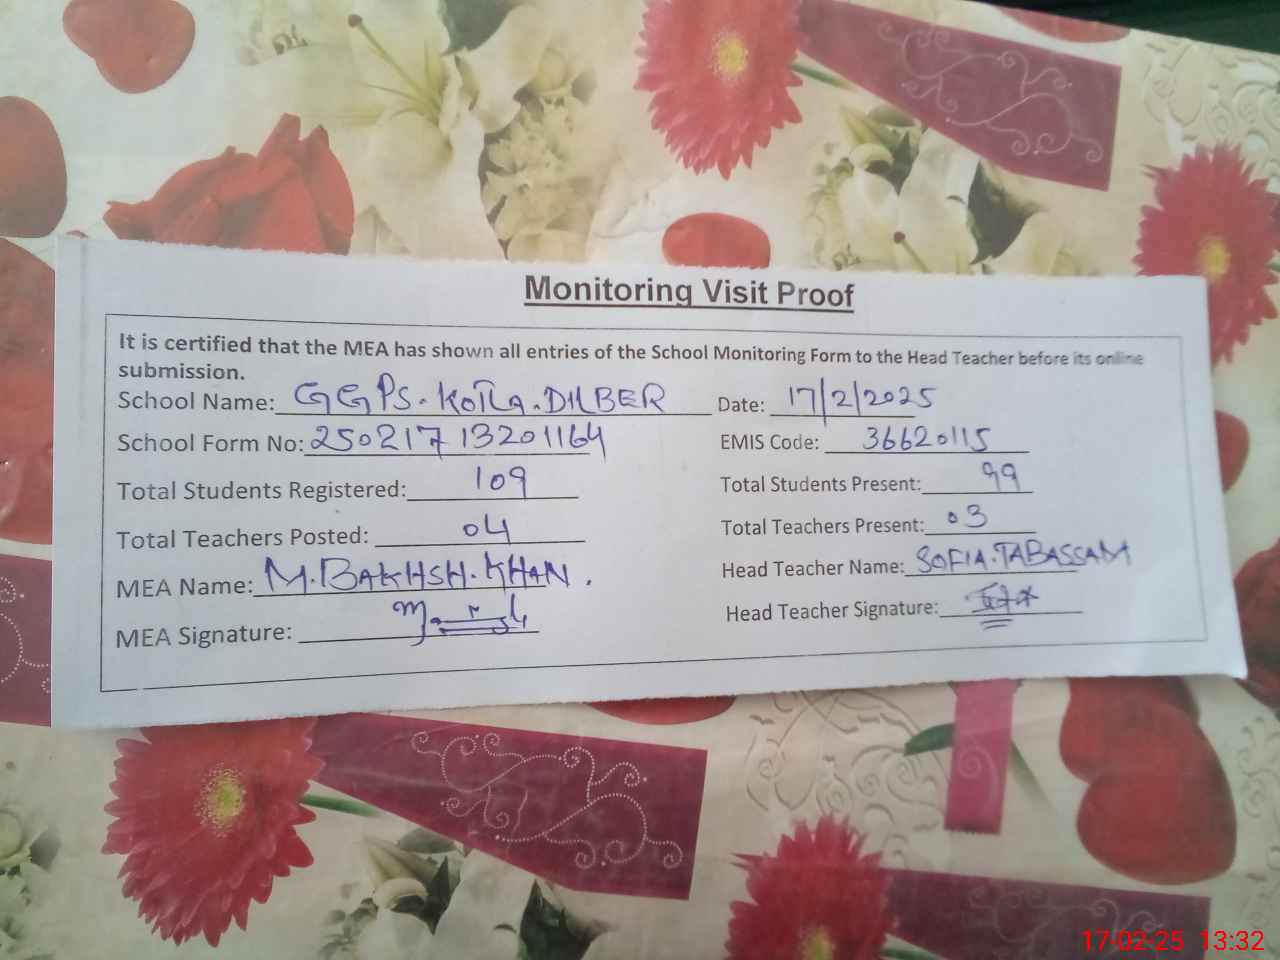 Monitoring Visit Proof
It is certified that the MEA has shown all entries of the School Monitoring Form to the Head Teacher before its online
submission.
School Name: GGPS. KOTLA. DILBER Date: 17/2/2025
School Form No: 25021713201164 EMIS Code: 36620115
Total Students Registered: 109 Total Students Present: 99
Total Teachers Posted: 04 Total Teachers Present: 03
MEA Name: M. BAKHSH. KHAN. Head Teacher Name: SOFIA. TABASSAM
MEA Signature: Head Teacher Signature:
17-02-25 13:32